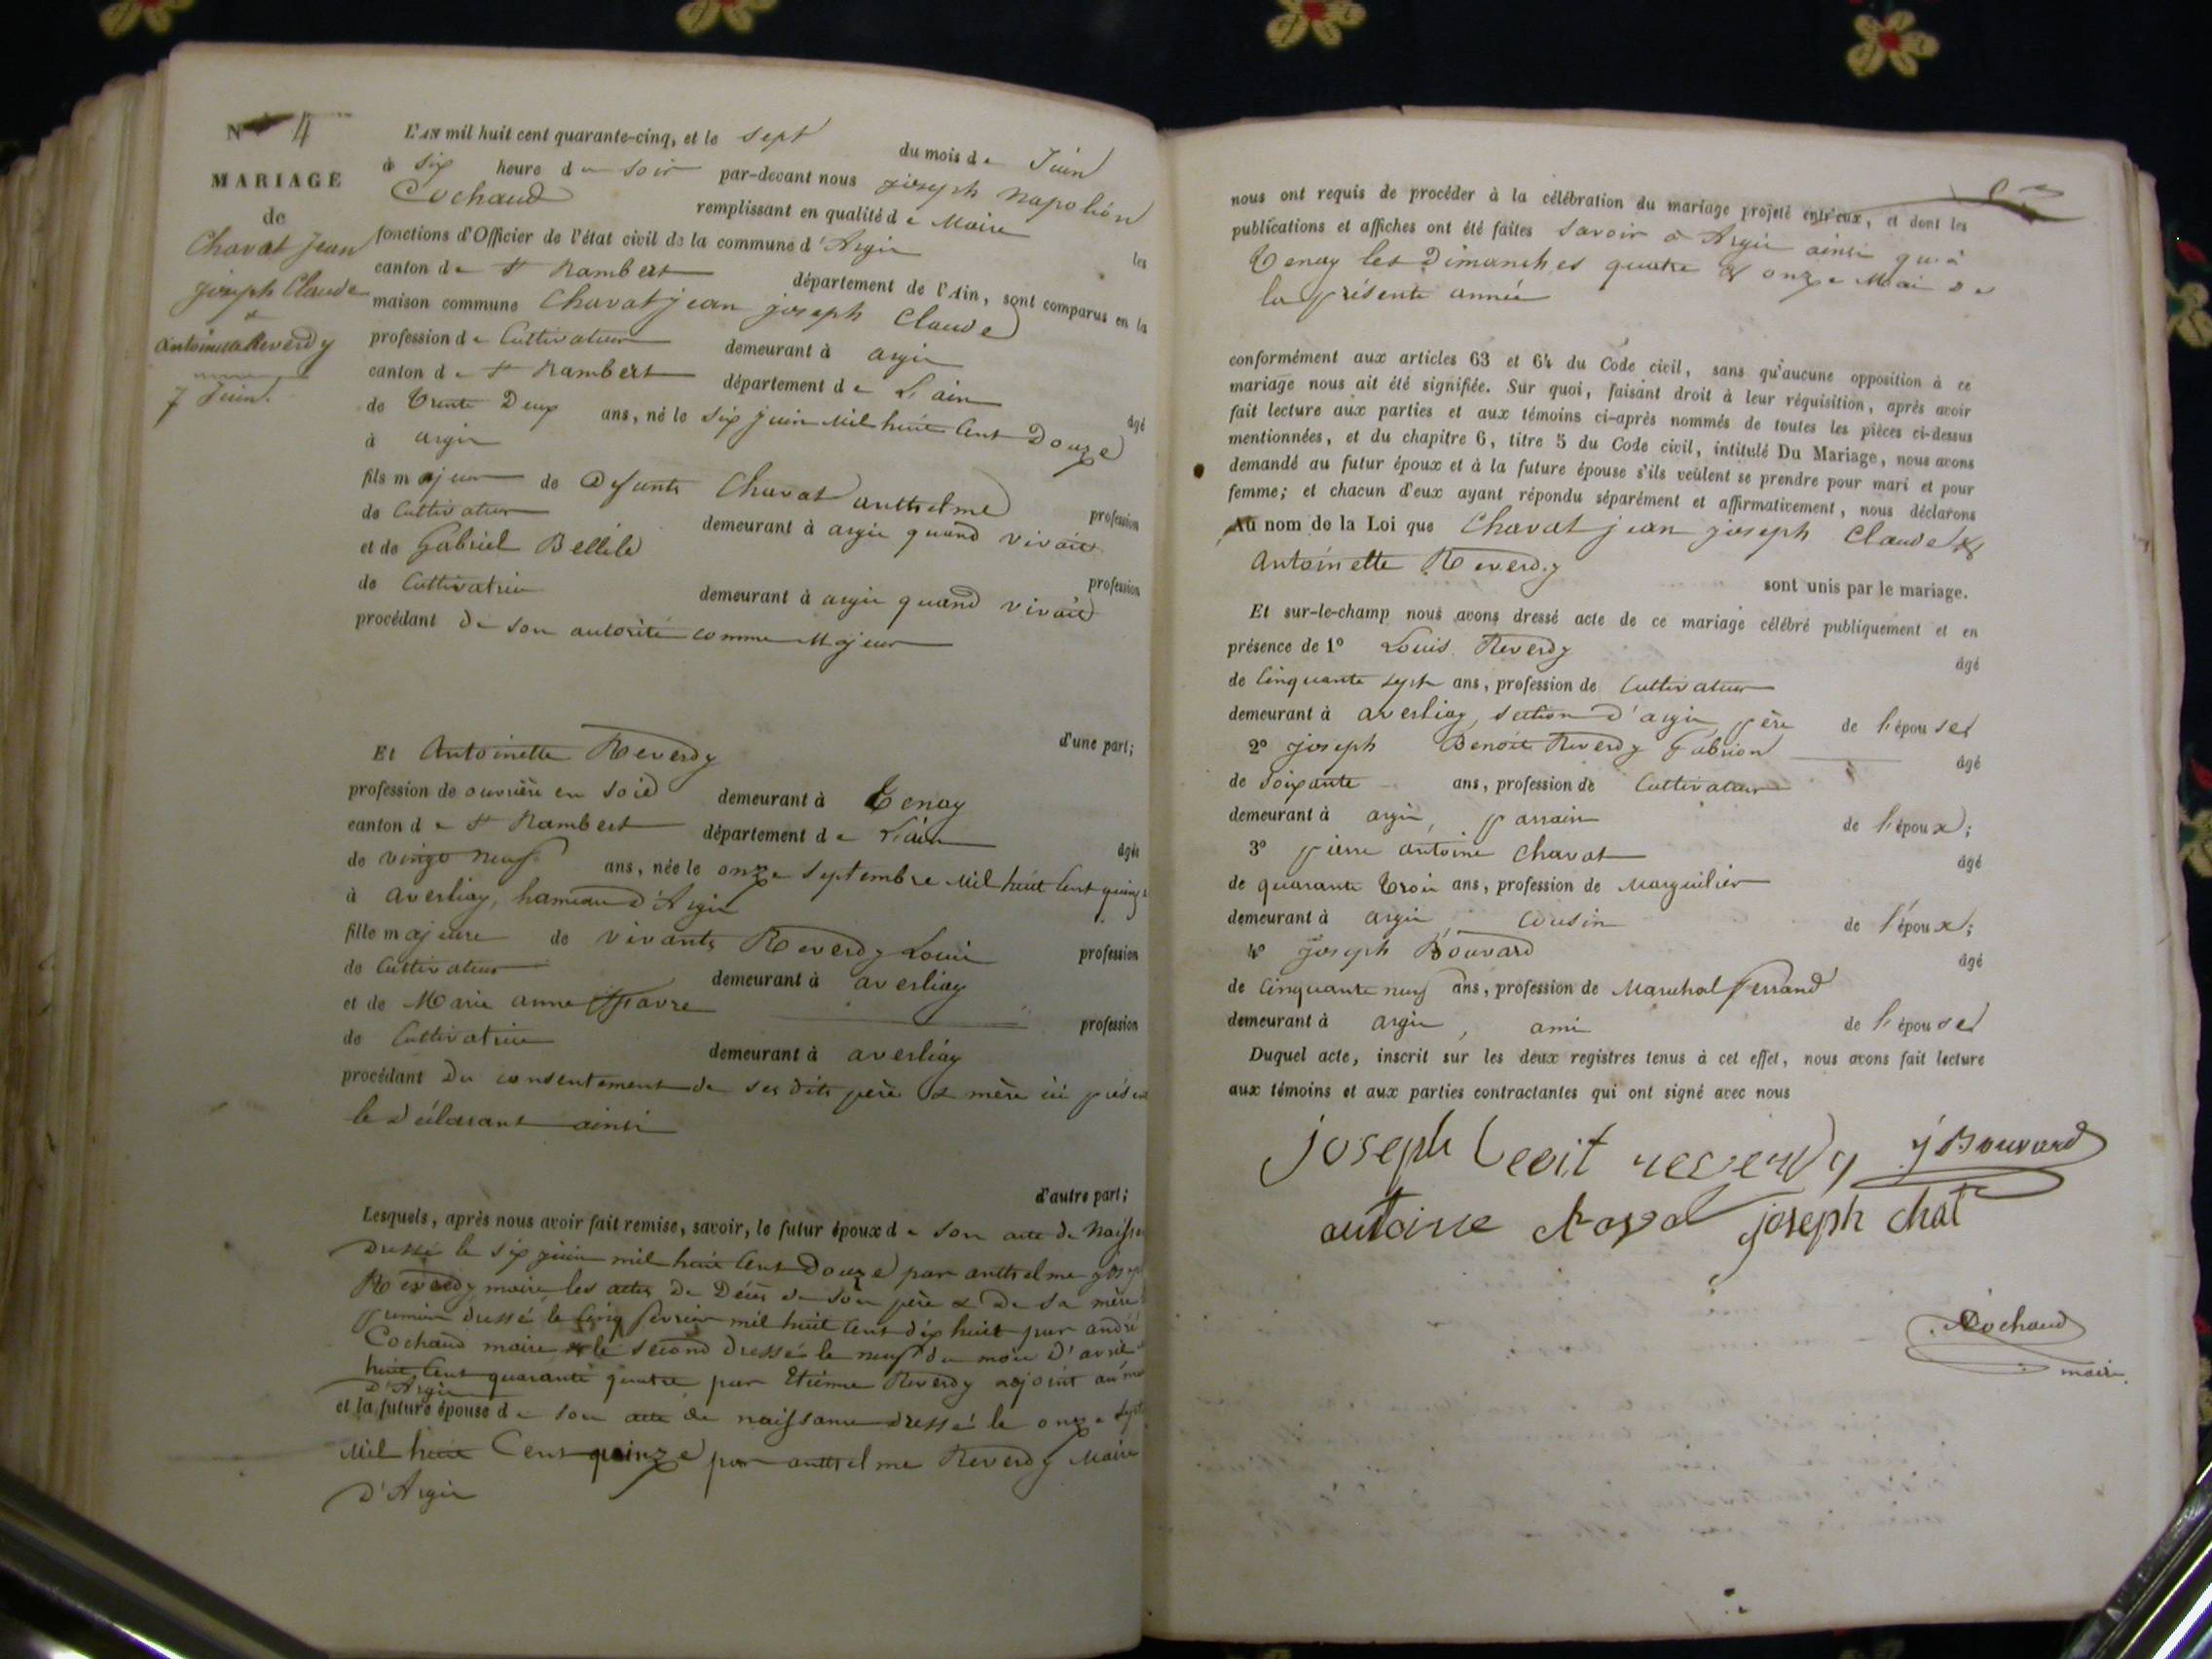 N° 4
MARIAGE
de
Chavat Jean
joseph Claude
&
Antoinette Reverdy
7 Juin.
L'AN mil huit cent quarante-cinq, et le sept du mois de Juin
à six heure du soir par-devant nous joseph napoléon
Cochaud remplissant en qualité de Maire les
fonctions d'Officier de l'état civil de la commune d'Argis
canton de St Rambert département de l'Ain, sont comparus en la
maison commune Chavat jean joseph Claude
profession de Cultivateur demeurant à argis
canton de St Rambert département de L'ain âgé
de Trente Deux ans, né le six juin Mil huit Cent Douze
à argis
fils majeur de Defunts Chavat anthelme profession
de Cultivateur demeurant à argis quand vivait
et de Gabriel Bellile profession
de Cultivatrice demeurant à argis quand vivait
procédant de son autorité comme Majeur
d'une part;
Et Antoinette Reverdy
profession de ouvrière en soie demeurant à Tenay
canton de St Rambert département de L'ain âgée
de vingt neuf ans, née le onze septembre Mil huit Cent quinze
à averliay, hameau d'Argis
fille majeure de vivants Reverdy Louis profession
de Cultivateur demeurant à averliay
et de Marie anne Favre profession
de Cultivatrice demeurant à averliay
procédant du consentement de ses dits père & mère ici
le déclarant ainsi
d'autre part;
Lesquels, après nous avoir fait remise, savoir, le futur époux de son acte de
Dressé le six juin mil huit Cent Douze par anthelme
Reverdy maire les actes de Décès de son père & de sa mère
premier dressé le Cinq fevrier mil huit cent dix huit par andré
Cochaud maire & le second dressé le neuf du mois d'avril
huit Cent quarante quatre par Etienne Reverdy adjoint au
D'Argis
et la future épouse de son acte de naissance dressé le onze
Mil huit Cent quinze par anthelme Reverdy Maire
D'Argis
nous ont requis de procéder à la célébration du mariage projeté entr'eux, et dont les
publications et affiches ont été faites savoir à Argis ainsi qu'à
Tenay les Dimanches quatre & onze Mai de
la présente année
conformément aux articles 63 et 64 du Code civil, sans qu'aucune opposition à ce
mariage nous ait été signifiée. Sur quoi, faisant droit à leur réquisition, après avoir
fait lecture aux parties et aux témoins ci-après nommés de toutes les pièces ci-dessus
mentionnées, et du chapitre 6, titre 5 du Code civil, intitulé Du Mariage, nous avons
demandé au futur époux et à la future épouse s'ils veulent se prendre pour mari et pour
femme; et chacun d'eux ayant répondu séparément et affirmativement, nous déclarons
Au nom de la Loi que Chavat jean joseph Claude &
Antoinette Reverdy
sont unis par le mariage.
Et sur-le-champ nous avons dressé acte de ce mariage célébré publiquement et en
présence de 1° Louis Reverdy âgé
de Cinquante sept ans, profession de Cultivateur
demeurant à averliay, section d'argis père de l'épouse
2° joseph Benoit Reverdy Gabrion âgé
de soixante ans, profession de Cultivateur
demeurant à argis, parrain de l'époux;
3° pierre antoine Chavat âgé
de quarante trois ans, profession de Marguilier
demeurant à argis, Cousin de l'époux;
4° Joseph Bouvard âgé
de Cinquante neuf ans, profession de Marechal ferrand
demeurant à argis, ami de l'épouse
Duquel acte, inscrit sur les deux registres tenus à cet effet, nous avons fait lecture
aux témoins et aux parties contractantes qui ont signé avec nous
joseph reverdy j Bouvard
antoine joseph chat
Cochaud
maire.